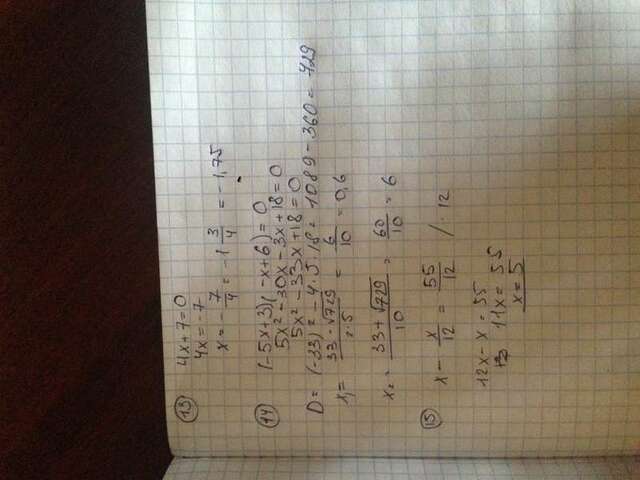 13
4x+7=0
4x=-7
x = -7/4 = -1 3/4 = -1,75
14
(-5x+3)(-x+6)=0
5x²-30x-3x+18=0
5x²-33x+18=0
D = (-33)²-4·5·18 = 1089-360 = 729
x₁ = (33-√729)/(2·5) = 6/10 = 0,6
x₂ = (33+√729)/10 = 60/10 = 6
15
x - x/12 = 55/12 /·12
12x-x=55
11x=55
x=5